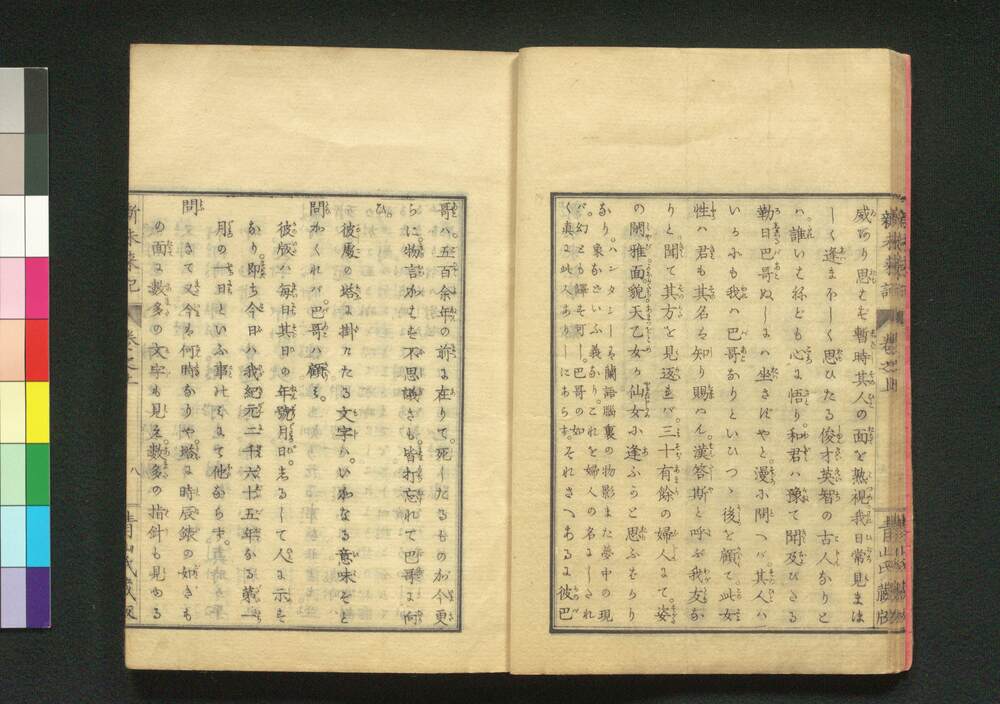 威あり思はず暫時其人の面を熟視我日常見まほ
しく逢まほしく思ひたる俊才英智の古人なりと
ハ誰いはねども心に悟り和君ハ豫て聞及びさる
勒日巴哥ぬしにハ坐さずやと漫ホ問へバ其人ハ
いかにも我ハ巴哥なりといひつゝ後を顧て此女
性ハ君も其名を知り賜ハん漢答斯と呼ぶ我友な
りと聞て其方を見返れバ三十有餘の婦人にて姿
の閑雅面貌天乙女か仙女小逢ふらと思ふむかり
なり ハンタシーそ蘭語腦裏の物影また夢中の現
象などいふ義なりこれを婦人の名にしされ
バ幻とも譯す可し巴哥の如
く真に此人ありしにあらずそれさへあるに彼巴
哥ハ五百余年の前に在りて死したるものが今更
らに物言かはせる不思議さも皆打忘れて巴哥に向
ひ
彼處の塔に掛けたる文字ハいかなる意味ぞと
問かくれバ巴哥ハ顧み
彼处ハ毎日其日の年號月日をしるして人に示すそ
なり即ち今日ハ我紀元二千六十五年なる第一
月の一日といふ事にて他ならず
問 さて又今ハ何時なりや塔に時辰錶の如きも
の面に数多の文字も見え数多の指針も見ゆる
新未来記
卷之上
八
青山氏藏版
卷之上
青山氏藏版